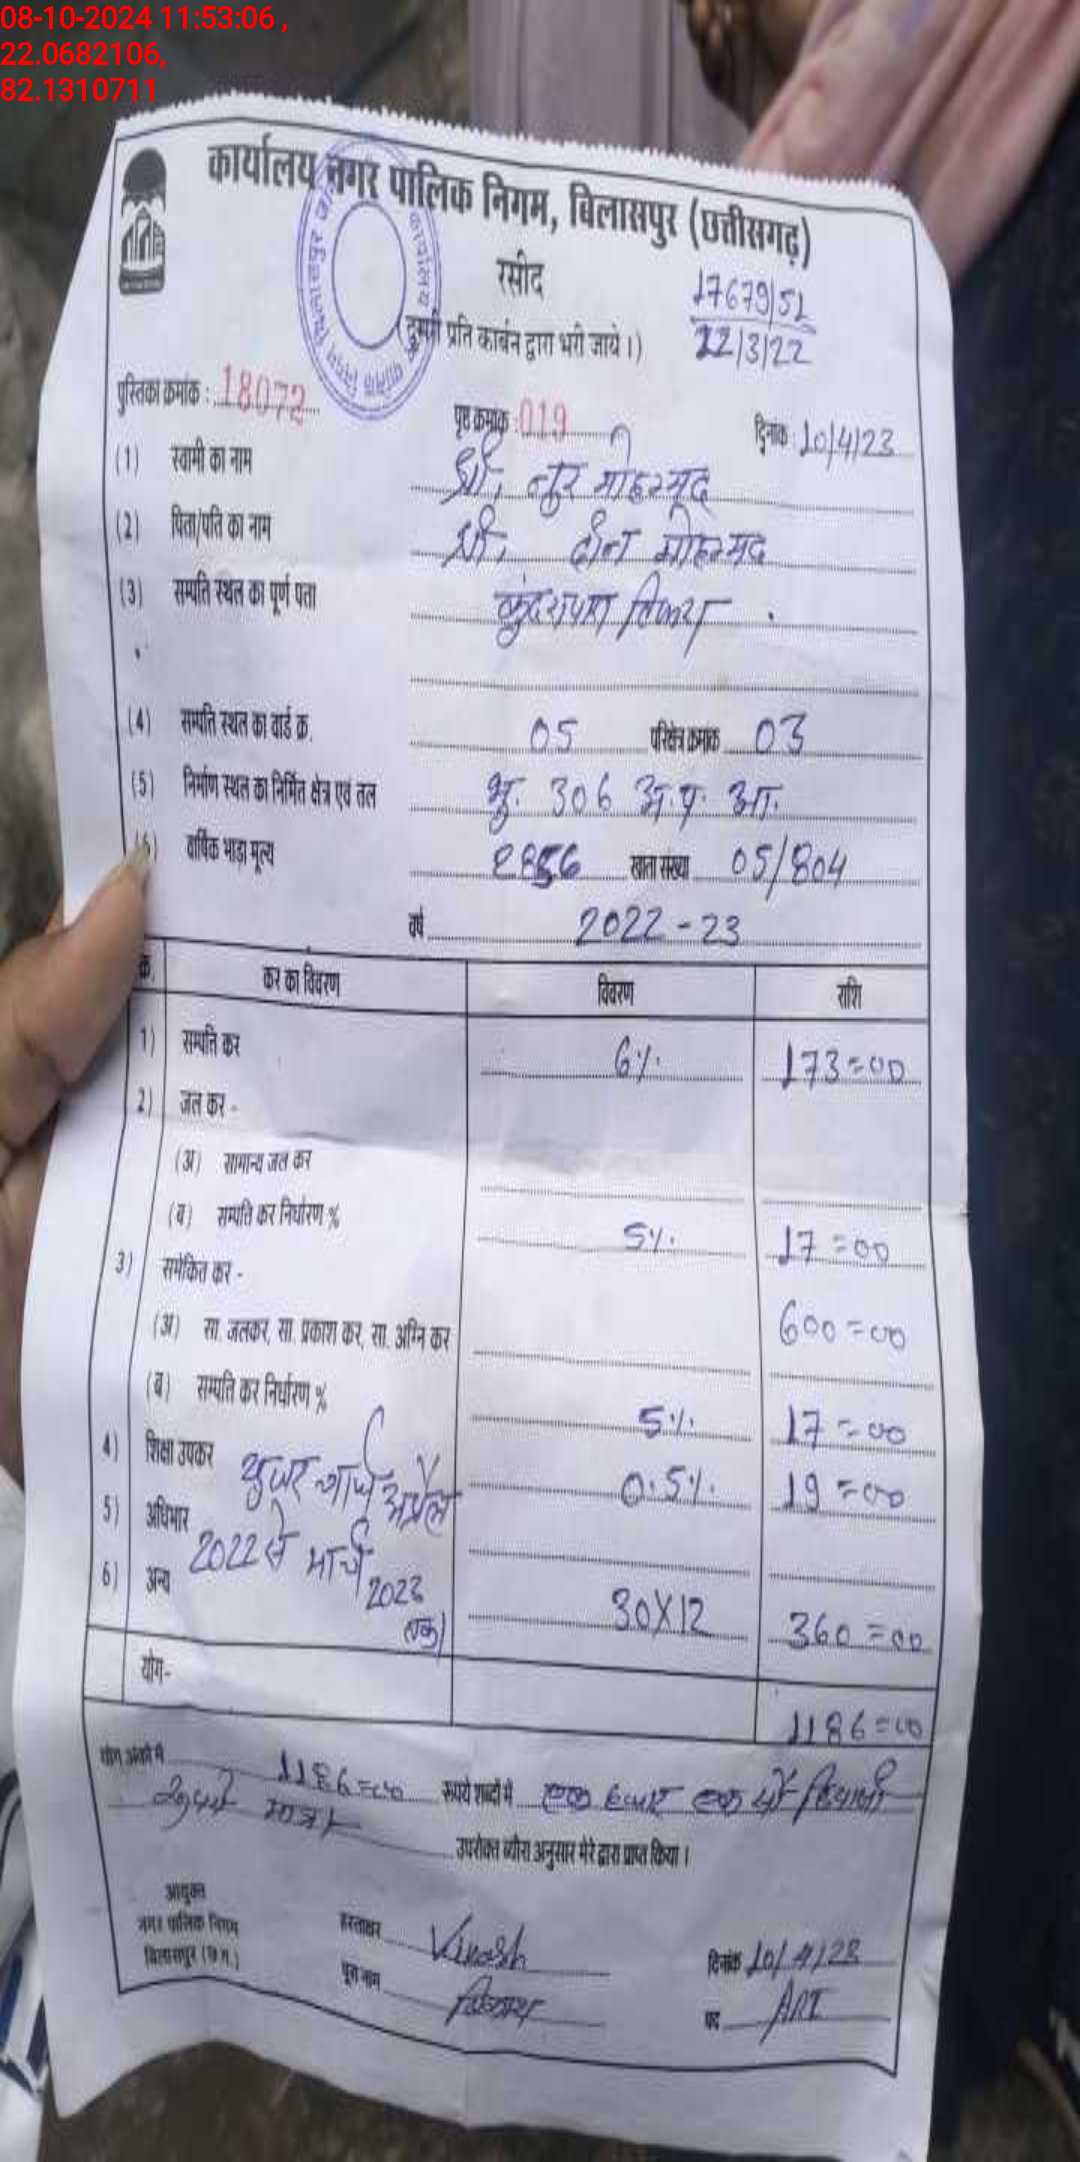 08-10-2024 11:53:06 ,
22.0682106,
82.1310711
कार्यालय नगर पालिक निगम, बिलासपुर (छत्तीसगढ़)
रसीद
17679/51
22/3/22
(दुसरी प्रति कार्बन द्वारा भरी जाये।)
पुस्तिका क्रमांक : 18072 पृष्ठ क्रमांक : 019 दिनांक : 10/4/23
(1) स्वामी का नाम श्री, नुर मोहम्मद
(2) पिता/पति का नाम श्री, दीन मोहम्मद
(3) सम्पति स्थल का पूर्ण पता
(4) सम्पति स्थल का वार्ड क्र. 05 परिक्षेत्र क्रमांक 03
(5) निर्माण स्थल का निर्मित क्षेत्र एवं तल भु. 306 अ.प. आ.
(6) वार्षिक भाड़ा मूल्य 2856 खाता संख्या 05/804
वर्ष 2022-23
क्र. कर का विवरण विवरण राशि
1) सम्पति कर 6%. 173=00
2) जल कर -
(अ) सामान्य जल कर
(ब) सम्पति कर निर्धारण % 5%. 17=00
3) समेकित कर -
(अ) सा. जलकर, सा. प्रकाश कर, सा. अग्नि कर 600=00
(ब) सम्पति कर निर्धारण % 5%. 17=00
4) शिक्षा उपकर 0.5%. 19=00
5) अधिभार
6) अन्य 30X12 360=00
युजर चार्ज अप्रेल
2022 से मार्च 2023
तक)
योग- 1186=00
योग अंको में 1186=00 रूपये शब्दों में एक हजार एक सौ छियासी
रूपये मात्र।
उपरोक्त ब्यौरा अनुसार मेरे द्वारा प्राप्त किया।
आयुक्त
नगर पालिक निगम
बिलासपुर (छ.ग.)
हस्ताक्षर दिनांक 10/4/23
पूरा नाम पद ARI